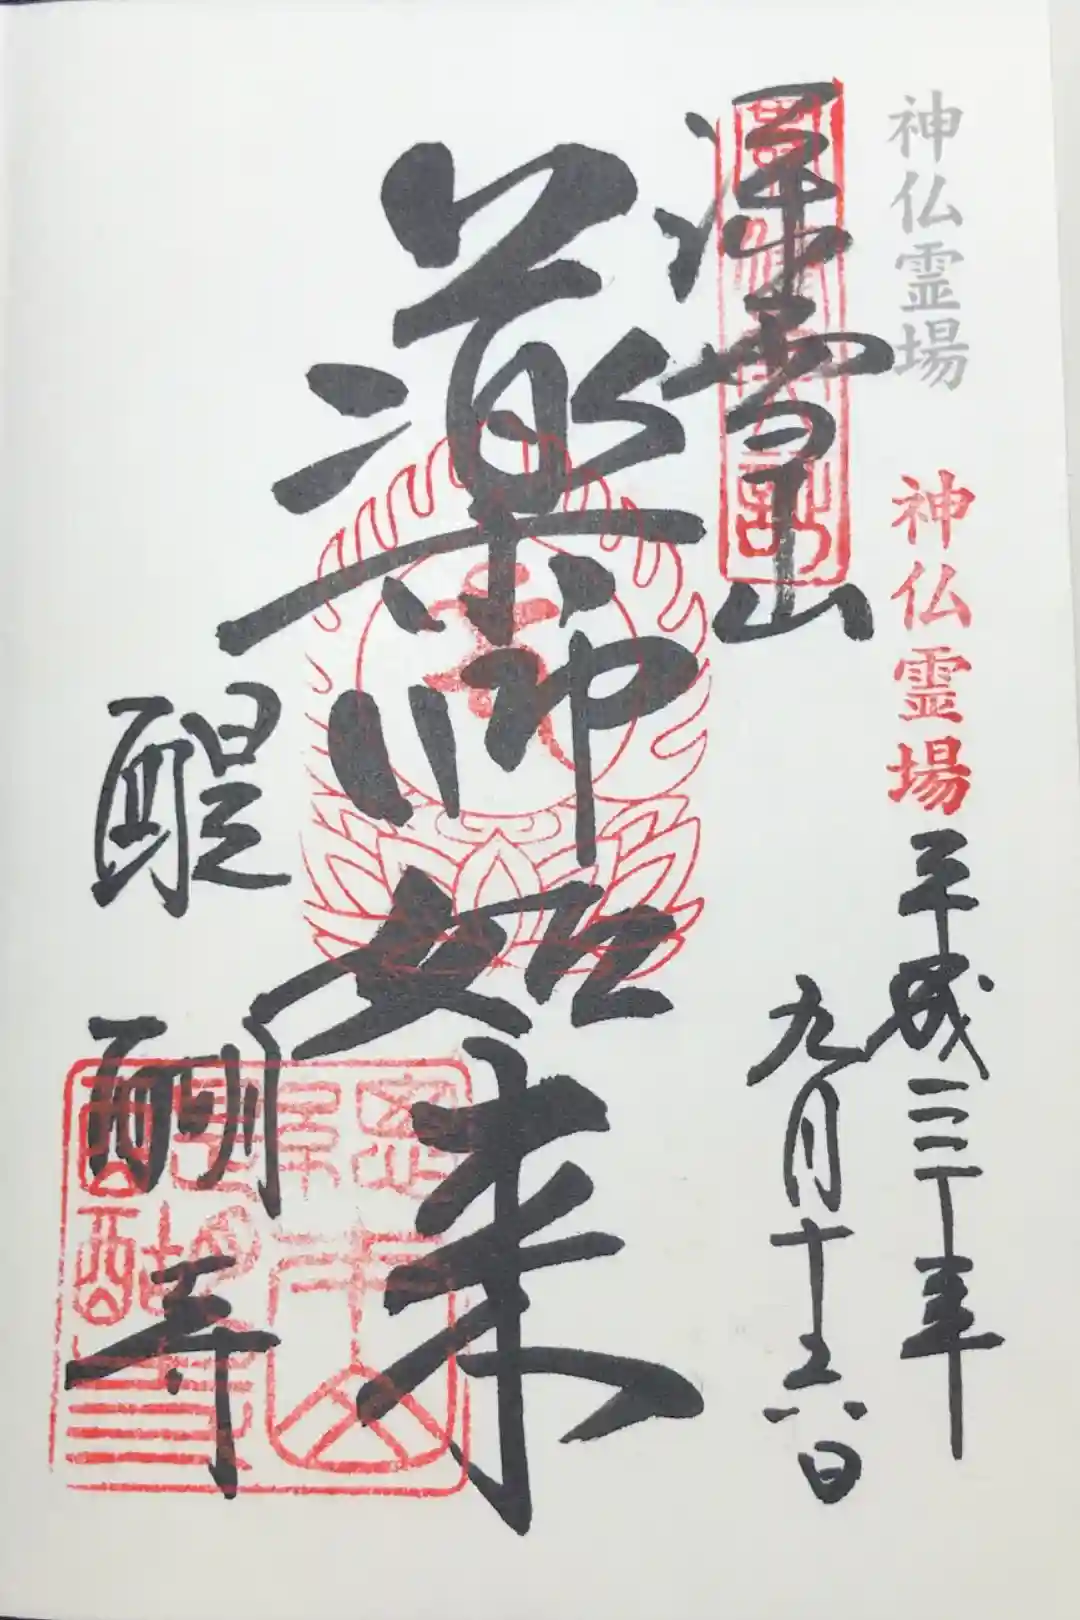 神仏霊場
神仏霊場
平成三十年
九月十六日
深雪山
薬師如来
醍醐寺